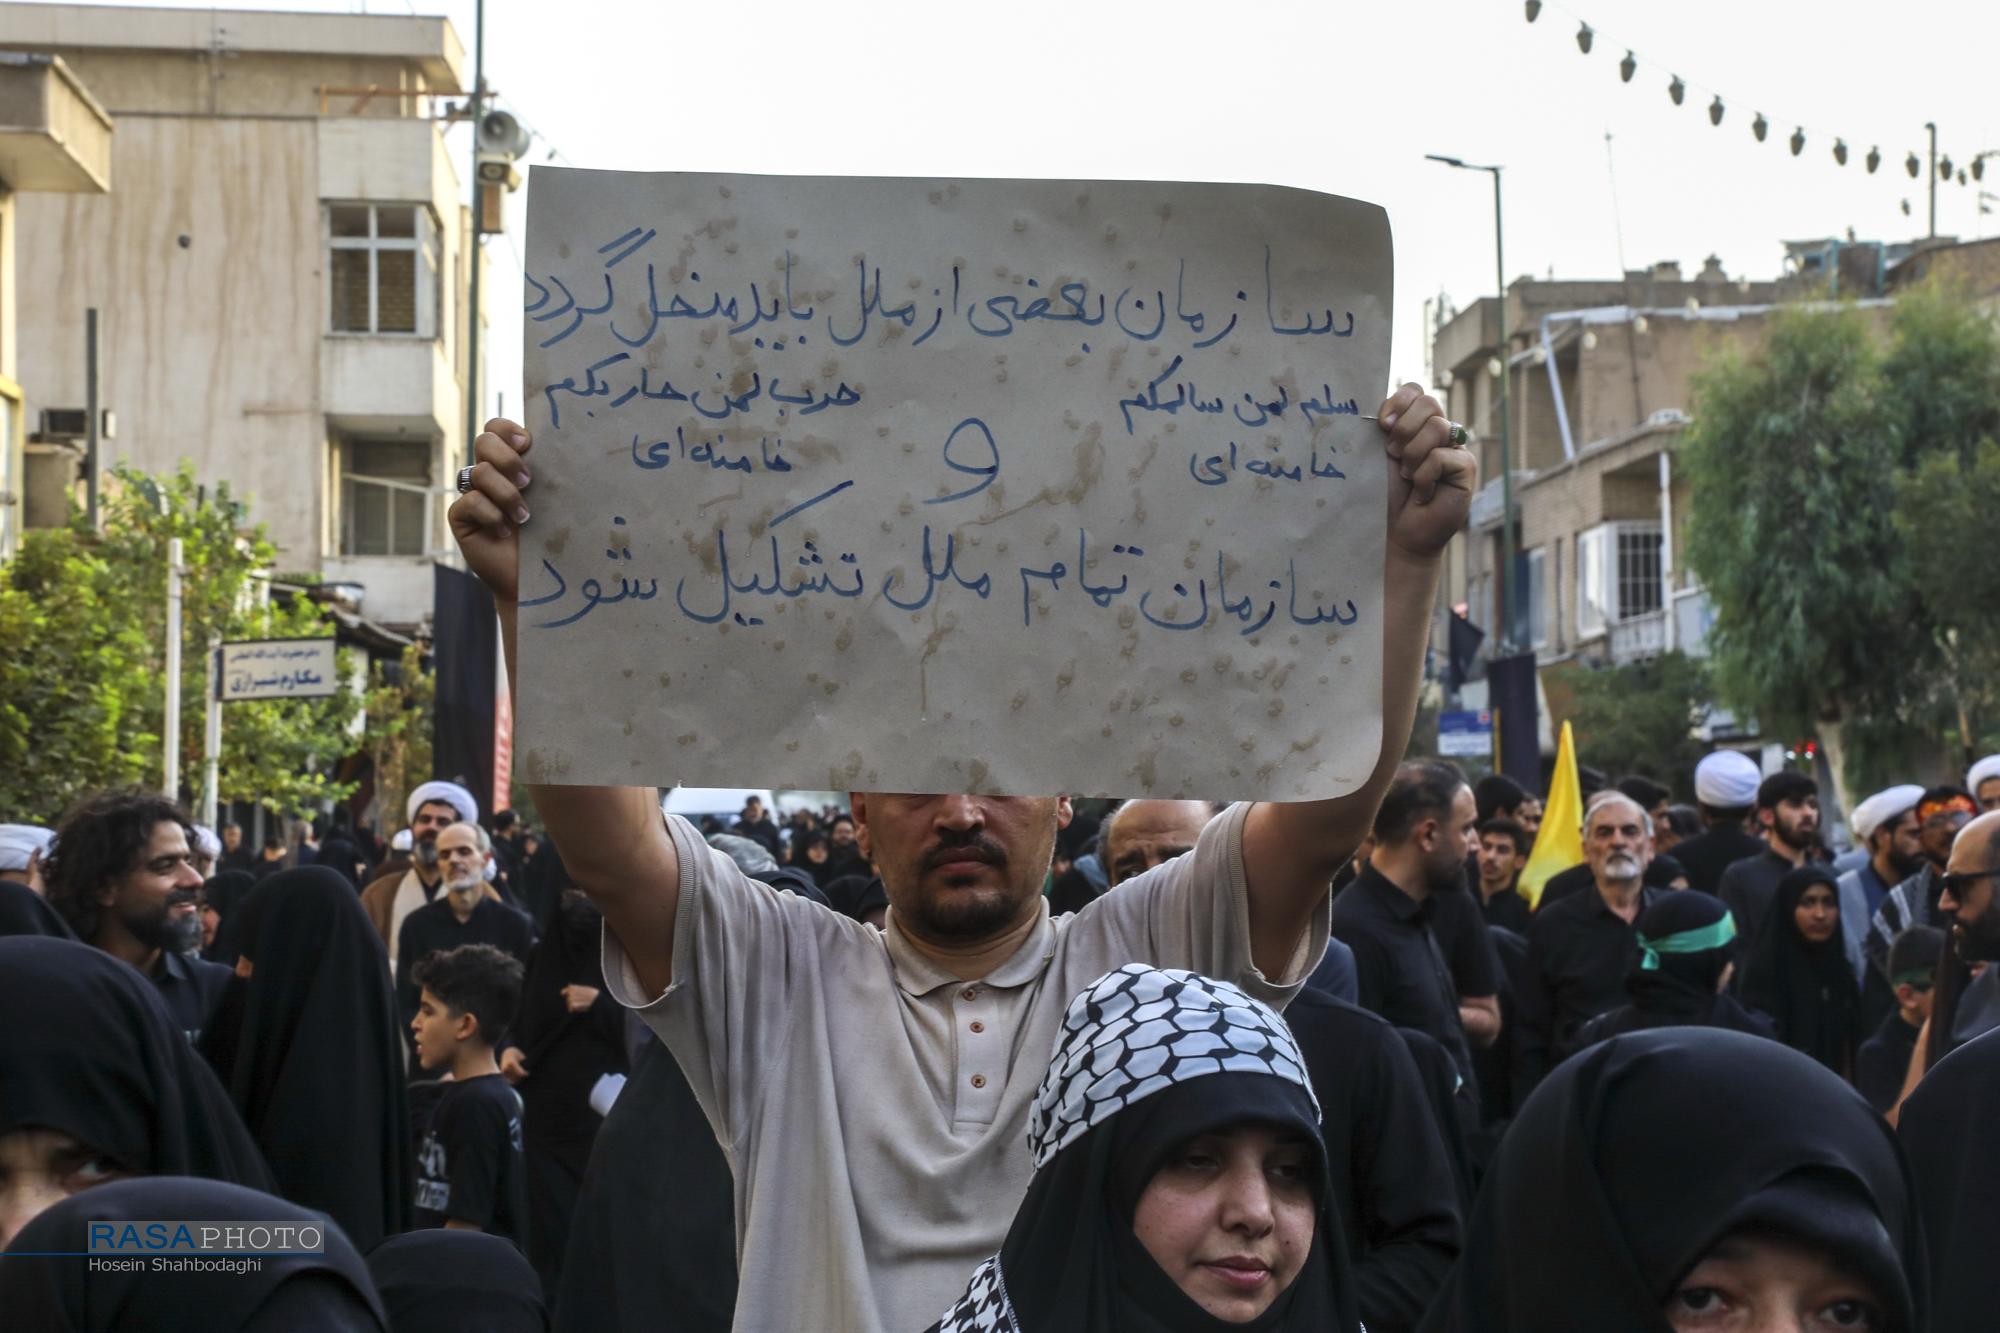 سازمان بعضی از ملل باید منحل گردد
سلم لمن سالمکم
حرب لمن حاربکم
خامنه ای
و
خامنه ای
سازمان تمام ملل تشکیل شود
دفتر حضرت آیت الله العظمی
مکارم شیرازی
RASAPHOTO
Hosein Shahbodaghi